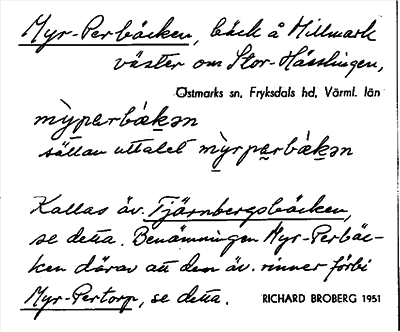 Myr-Perbäcken, bäck å Millmark
väster om Stor-Hässlingen,
Östmarks sn, Fryksdals hd, Värml. län
mỳperbàkən
sällan uttalet mỳrperbàkən
Kallas äv. Tjärnbergsbäcken,
se detta. Benämningen Myr-Perbäc-
ken därav att den äv. rinner förbi
Myr-Pertorp, se detta.
RICHARD BROBERG 1951